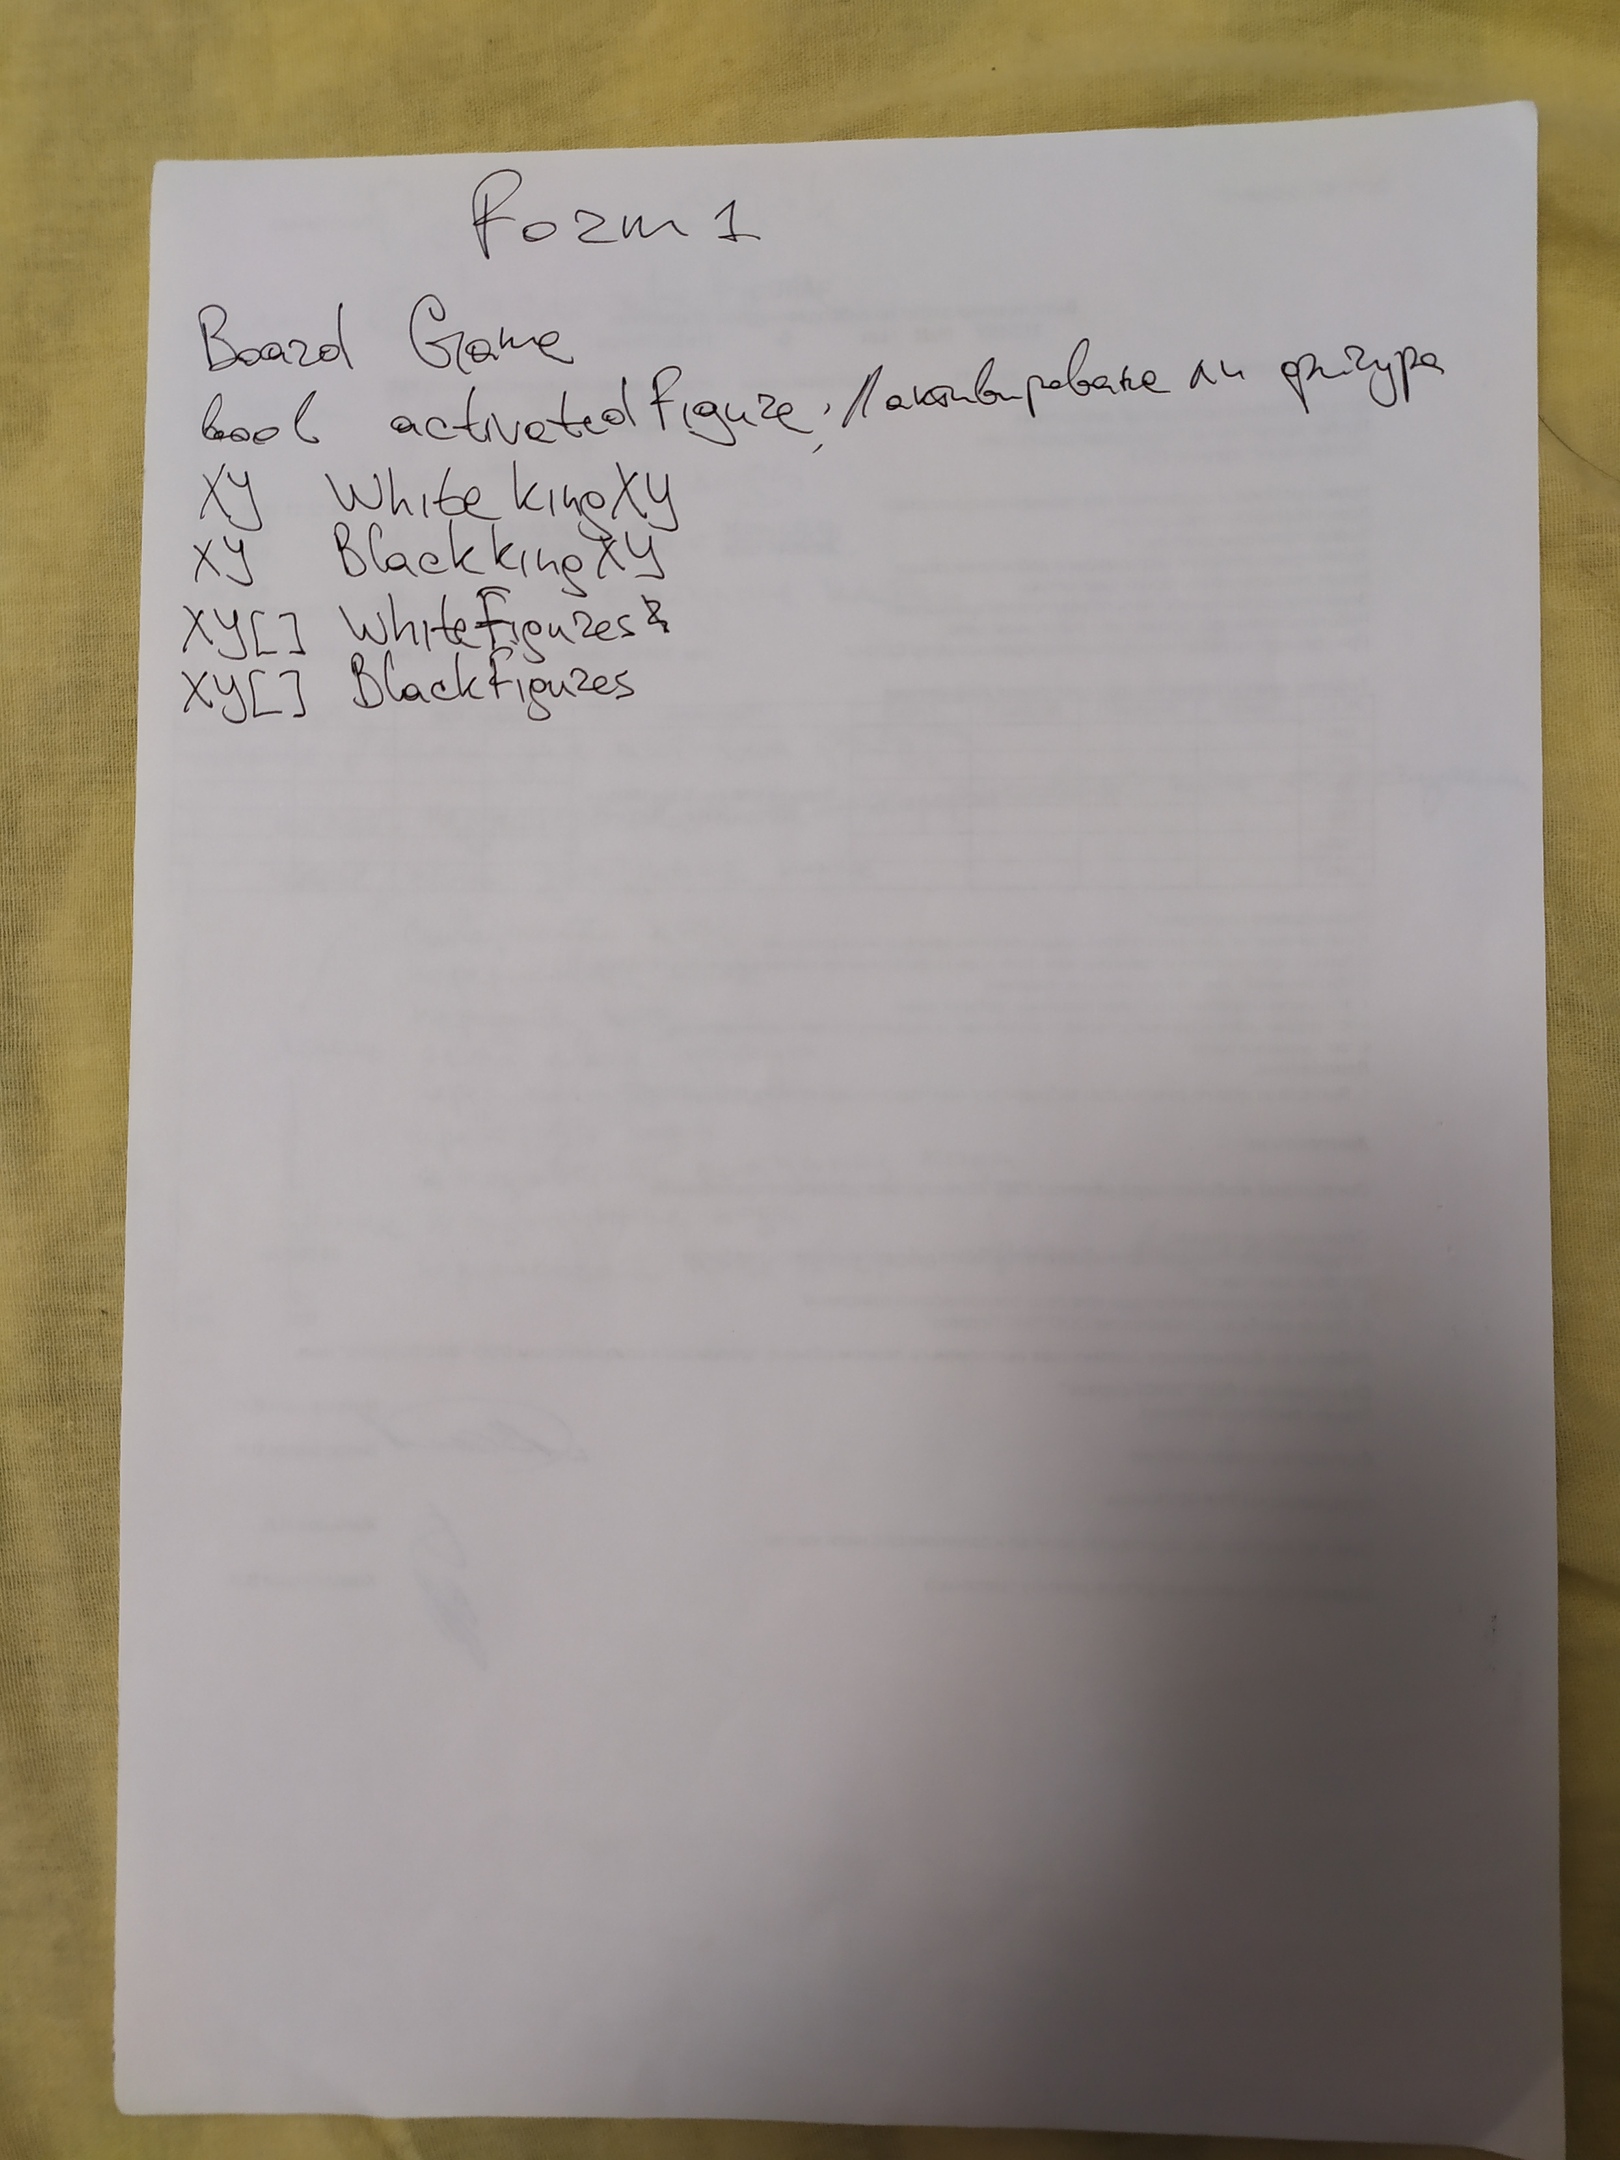 Form 1
Board Game
bool activatedFigure; // активирована ли фигура
XY WhitekingXY
XY BlackkingXY
XY[] WhiteFigures
XY[] BlackFigures